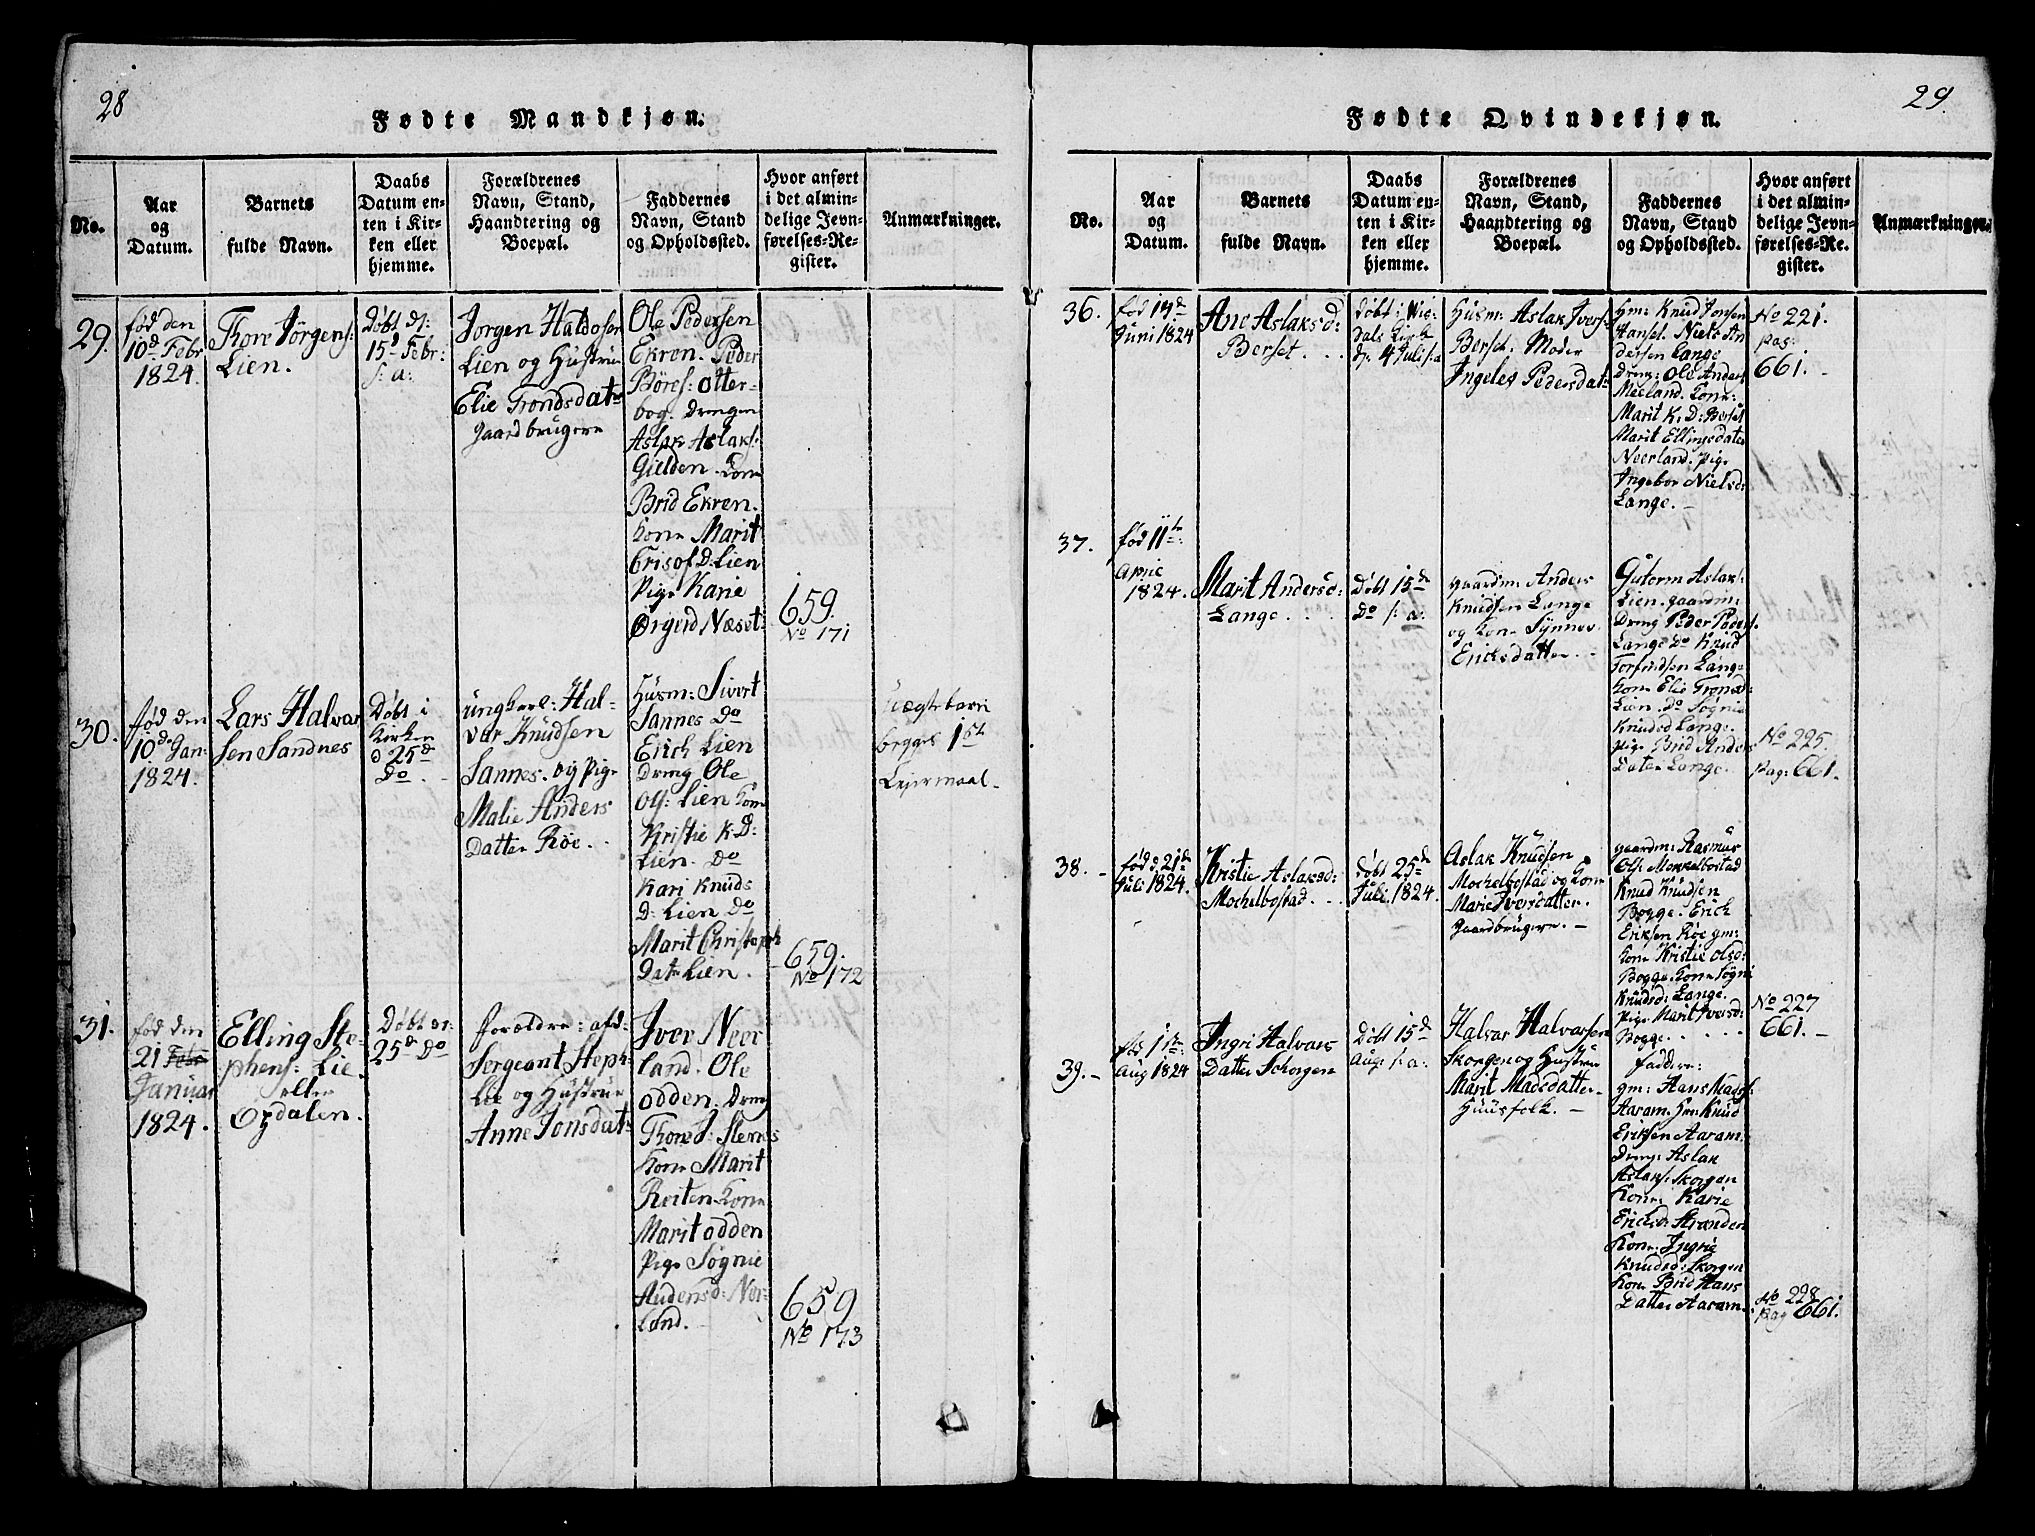 28
Fødte Mandkjøn.
No.
Aar
og
Datum.
Barnets
fulde Navn.
Daabs
Datum en-
ten i Kir-
ken eller
hjemme.
Forældrenes
Navn, Stand,
Haandtering og
Boepæl.
Faddernes
Navn, Stand
og Opholdssted.
Hvor anført
i det almin-
delige Jevn-
førelses-Re-
gister.
Anmærkninger.
29.
fød den
10d Febr
1824.
Thore Jörgens:
Lien.
Døbt d:
15d Febr:
s: a:
Jorgen Haldosen
Lien og Hustrue
Elie Trondsdatr
gaardbrugere
Ole Pedersen
Ekren. Peder
Børes: Otter-
bog. Drengen
Aslak Aslaks:
Gielden. Kone
Brid Ekren.
Kone Marit
Crisof D: Lien
Pige Karie
Ørgerd Næset:
659.
No 171
30.
fød den
10de Jan:
1824.
Lars Halvar
sen Sandnes
Døbt i
Kirken
d 25d
Do.
ungkarl: Hal-
var Knudsen
Sannes. og Pige
Malie Anders
Datter Röe.
Husm: Sivert
Sannes Do
Erich Lien
Dreng Ole
Ols: Lien Kone
Kristie K. D:
Lien. Do
Kari Knuds
D: Lien Do
Marit Christoph
Datr Lien.
659.
No 172
Uægtebarn
begges 1st
Leiermaal.
31.
fød den
21 Febr
Januar
1824.
Elling Ste-
phens: Lie
eller
Opdalen.
Døbt d:
25de Do
forældre: afd:
Sergeant Steph:
Lie og Hustrue
Anne Jonsdatr
Iver Neer
land. Ole
odden: Dreng
Thore J: Sternes
Kone Marit
Reiten Kone
Marit odden
Pige Sögnie
Audensd: Ner-
land.
659
No 173
29
Fødte Qvindekjøn.
No.
Aar
og
Datum.
Barnets
fulde Navn.
Daabs
Datum en-
ten i Kir-
ken eller
hjemme.
Forældrenes
Navn, Stand,
Haandtering og
Boepæl.
Faddernes
Navn, Stand
og Opholdssted.
Hvor anført
i det almin-
delige Jevn-
førelses-Re-
gister.
Anmærkninger.
36.
Juni 1824
Ane Aslaksd:
Berset.
Døbt i Vig-
dals Kirke
d: 4 Juli s: a
Husm: Aslak Ivers:
Berset. Moder
Ingeles Pedersdatr
Gm: Knud Jonsen
Hanset. Niels An
dersen Lange
Dreng: Ole Anders
Meeland. Kone:
Marit K. D: Berset
Marit Ellingsdater
Neerland. Pige
Ingebor Nielsd:
Lange.
No 221.
pag:
661.
37.
fød 11te
April
1824.
Marit Andersd:
Lange.
Døbt 15de
Do s: a:
gaardm: Anders
Knudsen Lange
og Kone Synnev
Ericksdatter.
Gutorm Aslaks:
Lien. gaardm:
Dreng Peder Peders:
Lange Do Knud
Torfindsen Lange
Kone Elie Tronsd:
Lien. Do Sognie
Knudsd Lange.
Pige Brid Anders
Dater Lange.
No 225.
Pag: 661.
38.
fød d: 21de
Juli 1824.
Kristie Aslaksd:
Mochelbostad.
Døbt 25de
Juli. 1824.
Aslak Knudsen
Mochelbostad og Kone
Marie Iversdatter.
Gaardbrugere.
gaardm: Rasmus
Ols: Mokkelbostad
Knud Knudsen
Bogge. Erich
Eriksen Roe gm:
Kone Kristie Olsd:
Bogge. Kone Sögni
Knudsd: Lange.
Pige Marit Iversd:
Bogge.
No 227
661.
39.
fød 1ste
Aug 1824
Ingri Halvars
Datter Schorgen
Døbt 15de
Aug: s: a:
Halvar Halvarsen
Skorgen og Hustrue
Marit Madsdatter
Huusfolk.
faddere:
gm: Hans Mads:
Aaram. Gm: Knud
Eriksen Aaram:
Dreng: Aslak
Aslaks: Skorgen
Kone: Karie
Ericksd: Stranden
Kone: Ingrie
Knudsd: Skorgen
Kone Brid Hans
Datter Aaram.
No 228
Pag 661.